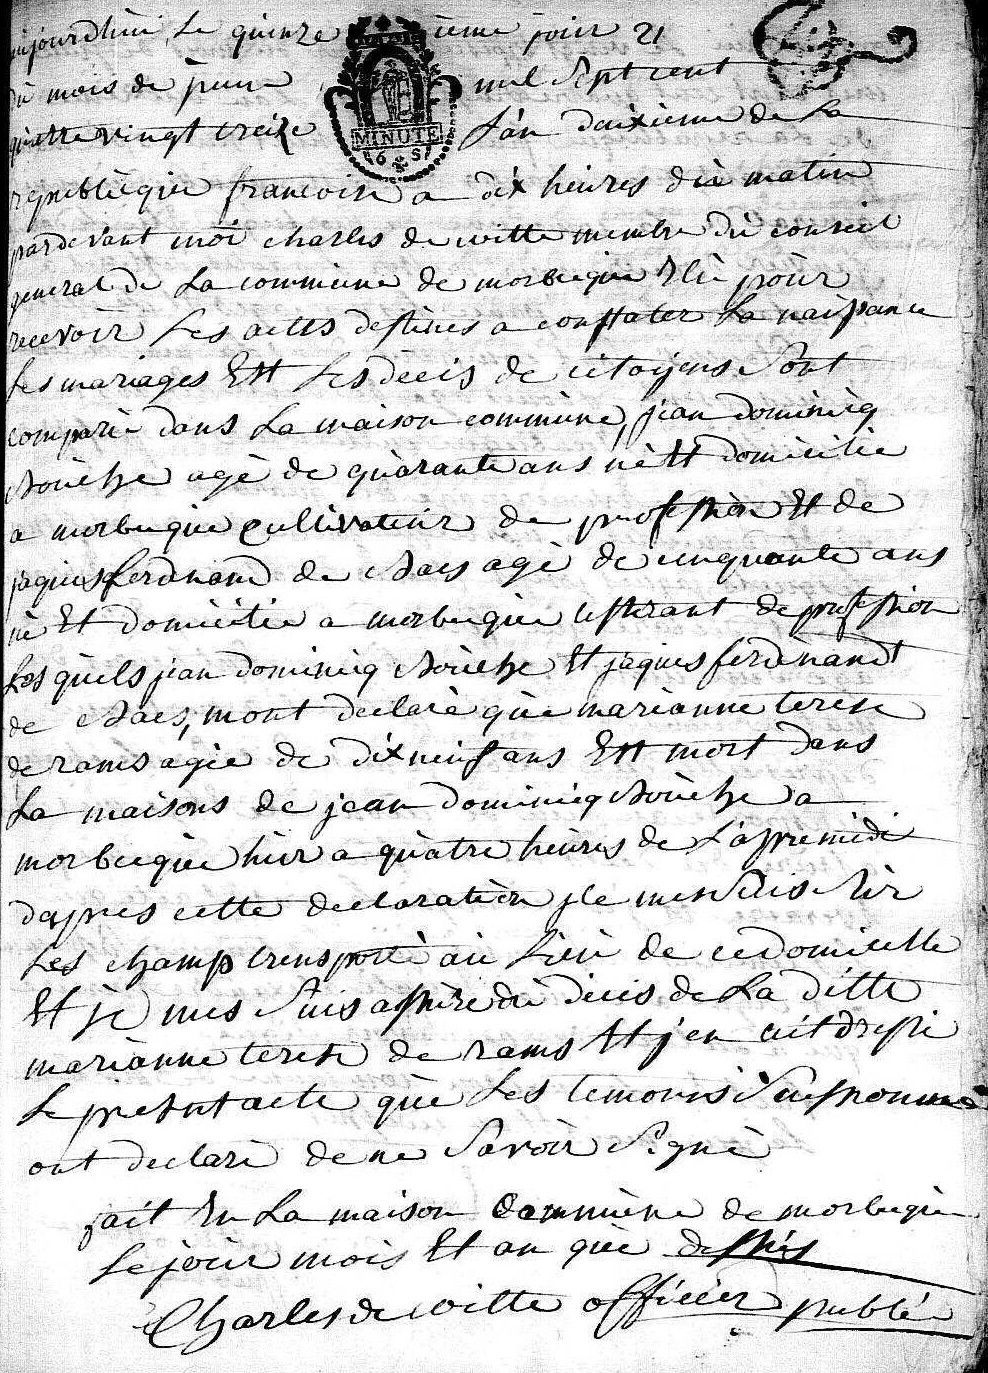 aujourdhui Le quinze ieme jour 21
du mois de mil Sept cent
quattre vingt treize L'an deuxieme de La
republique francoise a dix heures du matin
pardevant moi charles de witte membre du conseil
general de La commune de morbeque Elu pour
recevoir Les actes destines a constater La naissance
Les mariages Ett Les décès de citoijens Sont
comparu dans La maison commune, jean dominicq
agé de quarante ans né Et domicilie
a morbeque cultivateur de profession Et de
jaques ferdinand de agé de cinquante ans
né Et domicilie a morbeque de profession
Les quels jean dominicq Et jaques ferdinandt
de mont declaré que marianne terese
de rams agée de dix neuf ans Ett mort dans
La maisons de jean dominicq a
morbecque hier a quatre heures de L'apremidi
d'apres cette declaration je me Suis Sur
Les champ transporté au Lieu de ce domicille
Et je mes Suis assure du deces de La ditte
marianne terese de rams Et j'en ait dressé
Le present acte que Les temoins Susnommé
ont declaré de ne Savoir Signé
fait En La maison commune de morbeque
Le jour mois Et an que dessus
Charles de witte officier publé
MINUTE
6 S